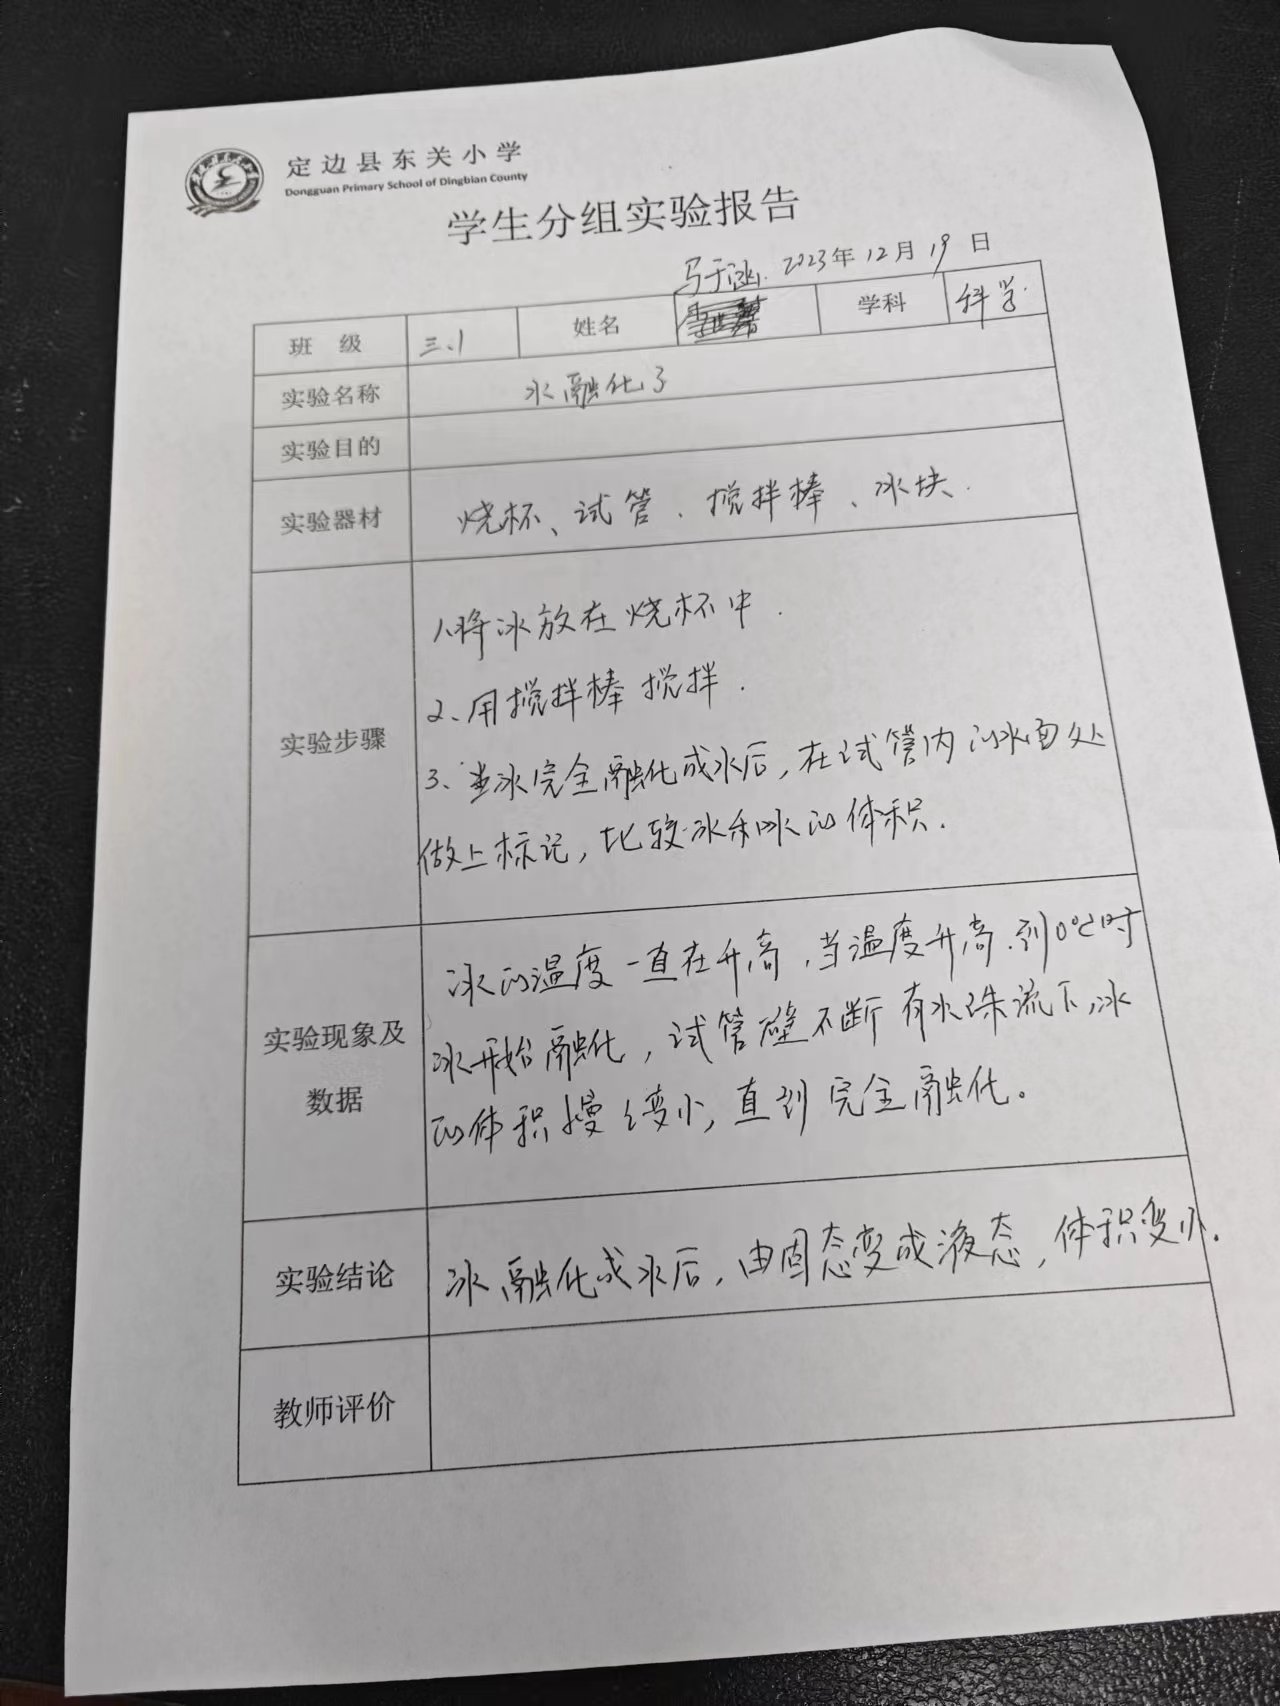 定边县东关小学
Dongguan Primary School of Dingbian County
学生分组实验报告
马于涵 2023年12月19日
班 级 三.1 姓名 学科 科学
实验名称 水融化了
实验目的
实验器材 烧杯、试管、搅拌棒、冰块.
实验步骤
1.将冰放在烧杯中.
2、用搅拌棒搅拌.
3、当冰完全融化成水后,在试管内的水面处
做上标记,比较冰和水的体积.
实验现象及
数据
冰的温度一直在升高,当温度升高到0℃时
冰开始融化,试管壁不断有水珠流下,冰
的体积慢々变小,直到完全融化。
实验结论 冰融化成水后,由固态变成液态,体积变小.
教师评价